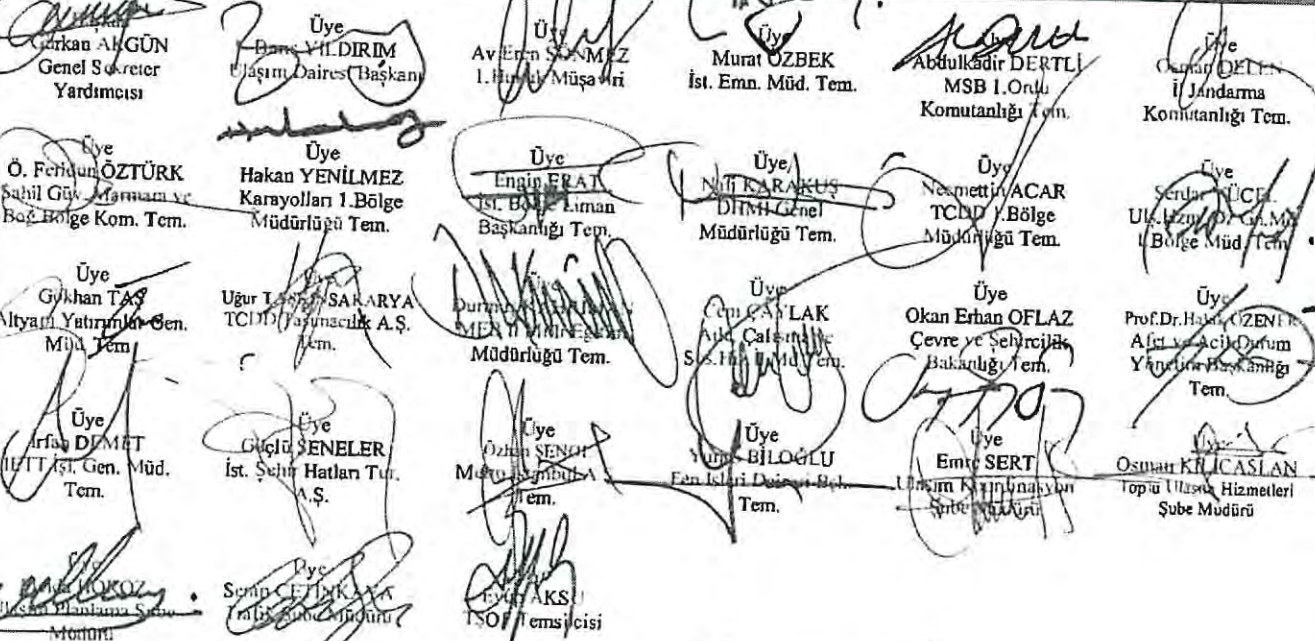 Gürkan AKGÜN
Genel Sekreter
Yardımcısı
Üye
Barış YILDIRIM
Ulaşım Dairesi Başkanı
Üye
Av. Eren SÖNMEZ
1.Hukuk Müşaviri
Üye
Murat ÖZBEK
İst. Emn. Müd. Tem.
Üye
Abdulkadir DERTLİ
MSB 1.Ordu
Komutanlığı Tem.
Üye
Osman DELEN
İl Jandarma
Komutanlığı Tem.
Üye
Ö. Feridun ÖZTÜRK
Sahil Güv. Marmara ve
Boğ. Bölge Kom. Tem.
Üye
Hakan YENİLMEZ
Karayolları 1.Bölge
Müdürlüğü Tem.
Üye
Engin ERAT
İst. Bölge Liman
Başkanlığı Tem.
Üye
KARAKUŞ
DHMİ Genel
Müdürlüğü Tem.
Üye
Necmettin ACAR
TCDD 1.Bölge
Müdürlüğü Tem.
Üye
Serdar YÜCEL
1.Bölge Müd. Tem.
Üye
Gökhan TAŞ
Altyapı Yatırımlar Gen.
Müd. Tem.
Üye
Uğur SAKARYA
TCDD Taşımacılık A.Ş.
Tem.
Müdürlüğü Tem.
Üye
Cem ÇAYLAK
Üye
Okan Erhan OFLAZ
Çevre ve Şehircilik
Bakanlığı Tem.
Üye
Prof.Dr. ÖZENER
Afet ve Acil Durum
Yönetim Başkanlığı
Tem.
Üye
İrfan DEMET
İETT İşl. Gen. Müd.
Tem.
Üye
Güçlü ŞENELER
İst. Şehir Hatları Tur.
A.Ş.
Üye
Özhan ŞENOL
Metro İstanbul A
Tem.
Üye
BİLOĞLU
Fen İşleri Dairesi Bşk.
Tem.
Üye
Emre SERT
Ulaşım Koordinasyon
Şube Müdürü
Üye
Osman KILIÇASLAN
Toplu Ulaşım Hizmetleri
Şube Müdürü
HOROZ
Ulaşım Planlama Şube
Müdürü
Üye
ÇETİNKAYA
Trafik Şube Müdürü
Eyüp AKSU
TŞOF Temsilcisi